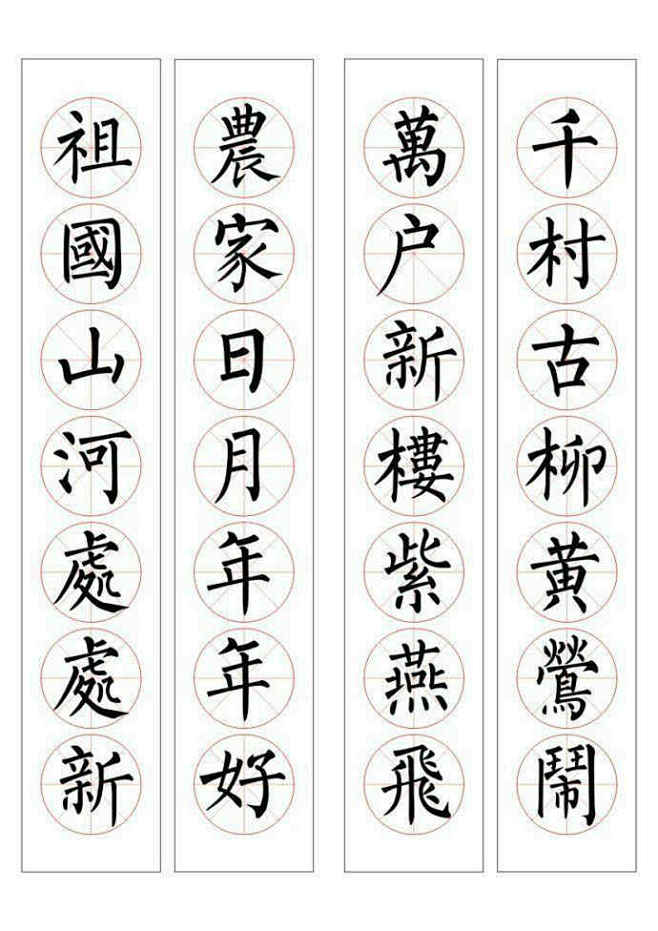 千村古柳黄鶯鬧
萬户新樓紫燕飛
農家日月年年好
祖國山河處處新